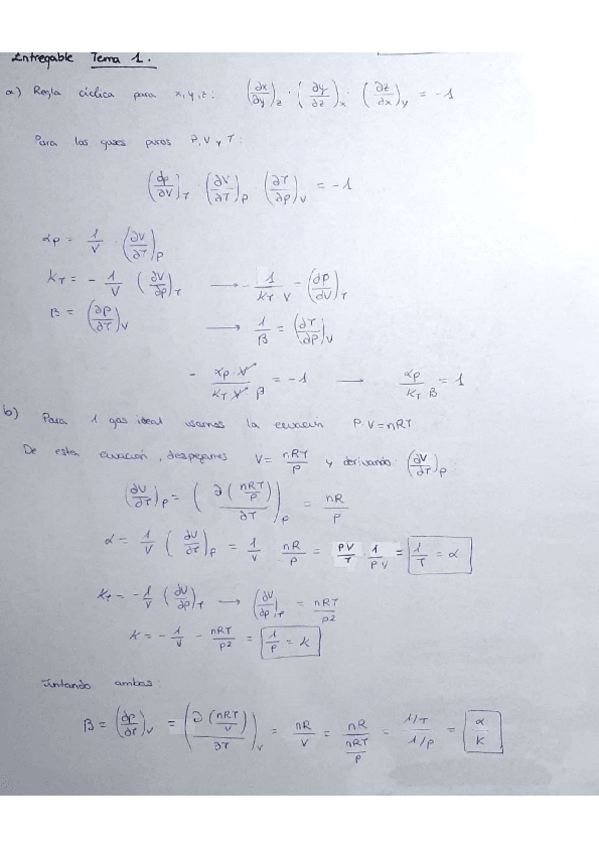 Entregable Tema 1.
a) Regla cíclica para x, y, z: (∂x/∂y)_z · (∂y/∂z)_x · (∂z/∂x)_y = -1
Para los gases puros P, V y T:
(∂p/∂V)_T · (∂V/∂T)_P · (∂T/∂p)_V = -1
αp = 1/V · (∂V/∂T)_P
K_T = - 1/V (∂V/∂p)_T ⟶ - 1/(K_T V) = (∂P/∂V)_T
β = (∂p/∂T)_V ⟶ 1/β = (∂T/∂p)_V
- (αp · V)/(K_T V β) = -1 ⟶ αp/(K_T β) = 1
b) Para 1 gas ideal usamos la ecuación P V = nRT
De esta ecuación, despejamos V = nRT/P y derivando (∂V/∂T)_P:
(∂V/∂T)_P = (∂(nRT/P)/∂T)_P = nR/P
α = 1/V (∂V/∂T)_P = 1/V nR/P = PV/T · 1/PV = 1/T = α
K_T = - 1/V (∂V/∂p)_T ⟶ (∂V/∂p)_T = nRT/p2
K = - 1/V - nRT/p2 = 1/P = K
Juntando ambas:
β = (∂p/∂T)_V = (∂(nRT/V)/∂T)_V = nR/V = nR/(nRT/P) = (1/T)/(1/P) = α/K